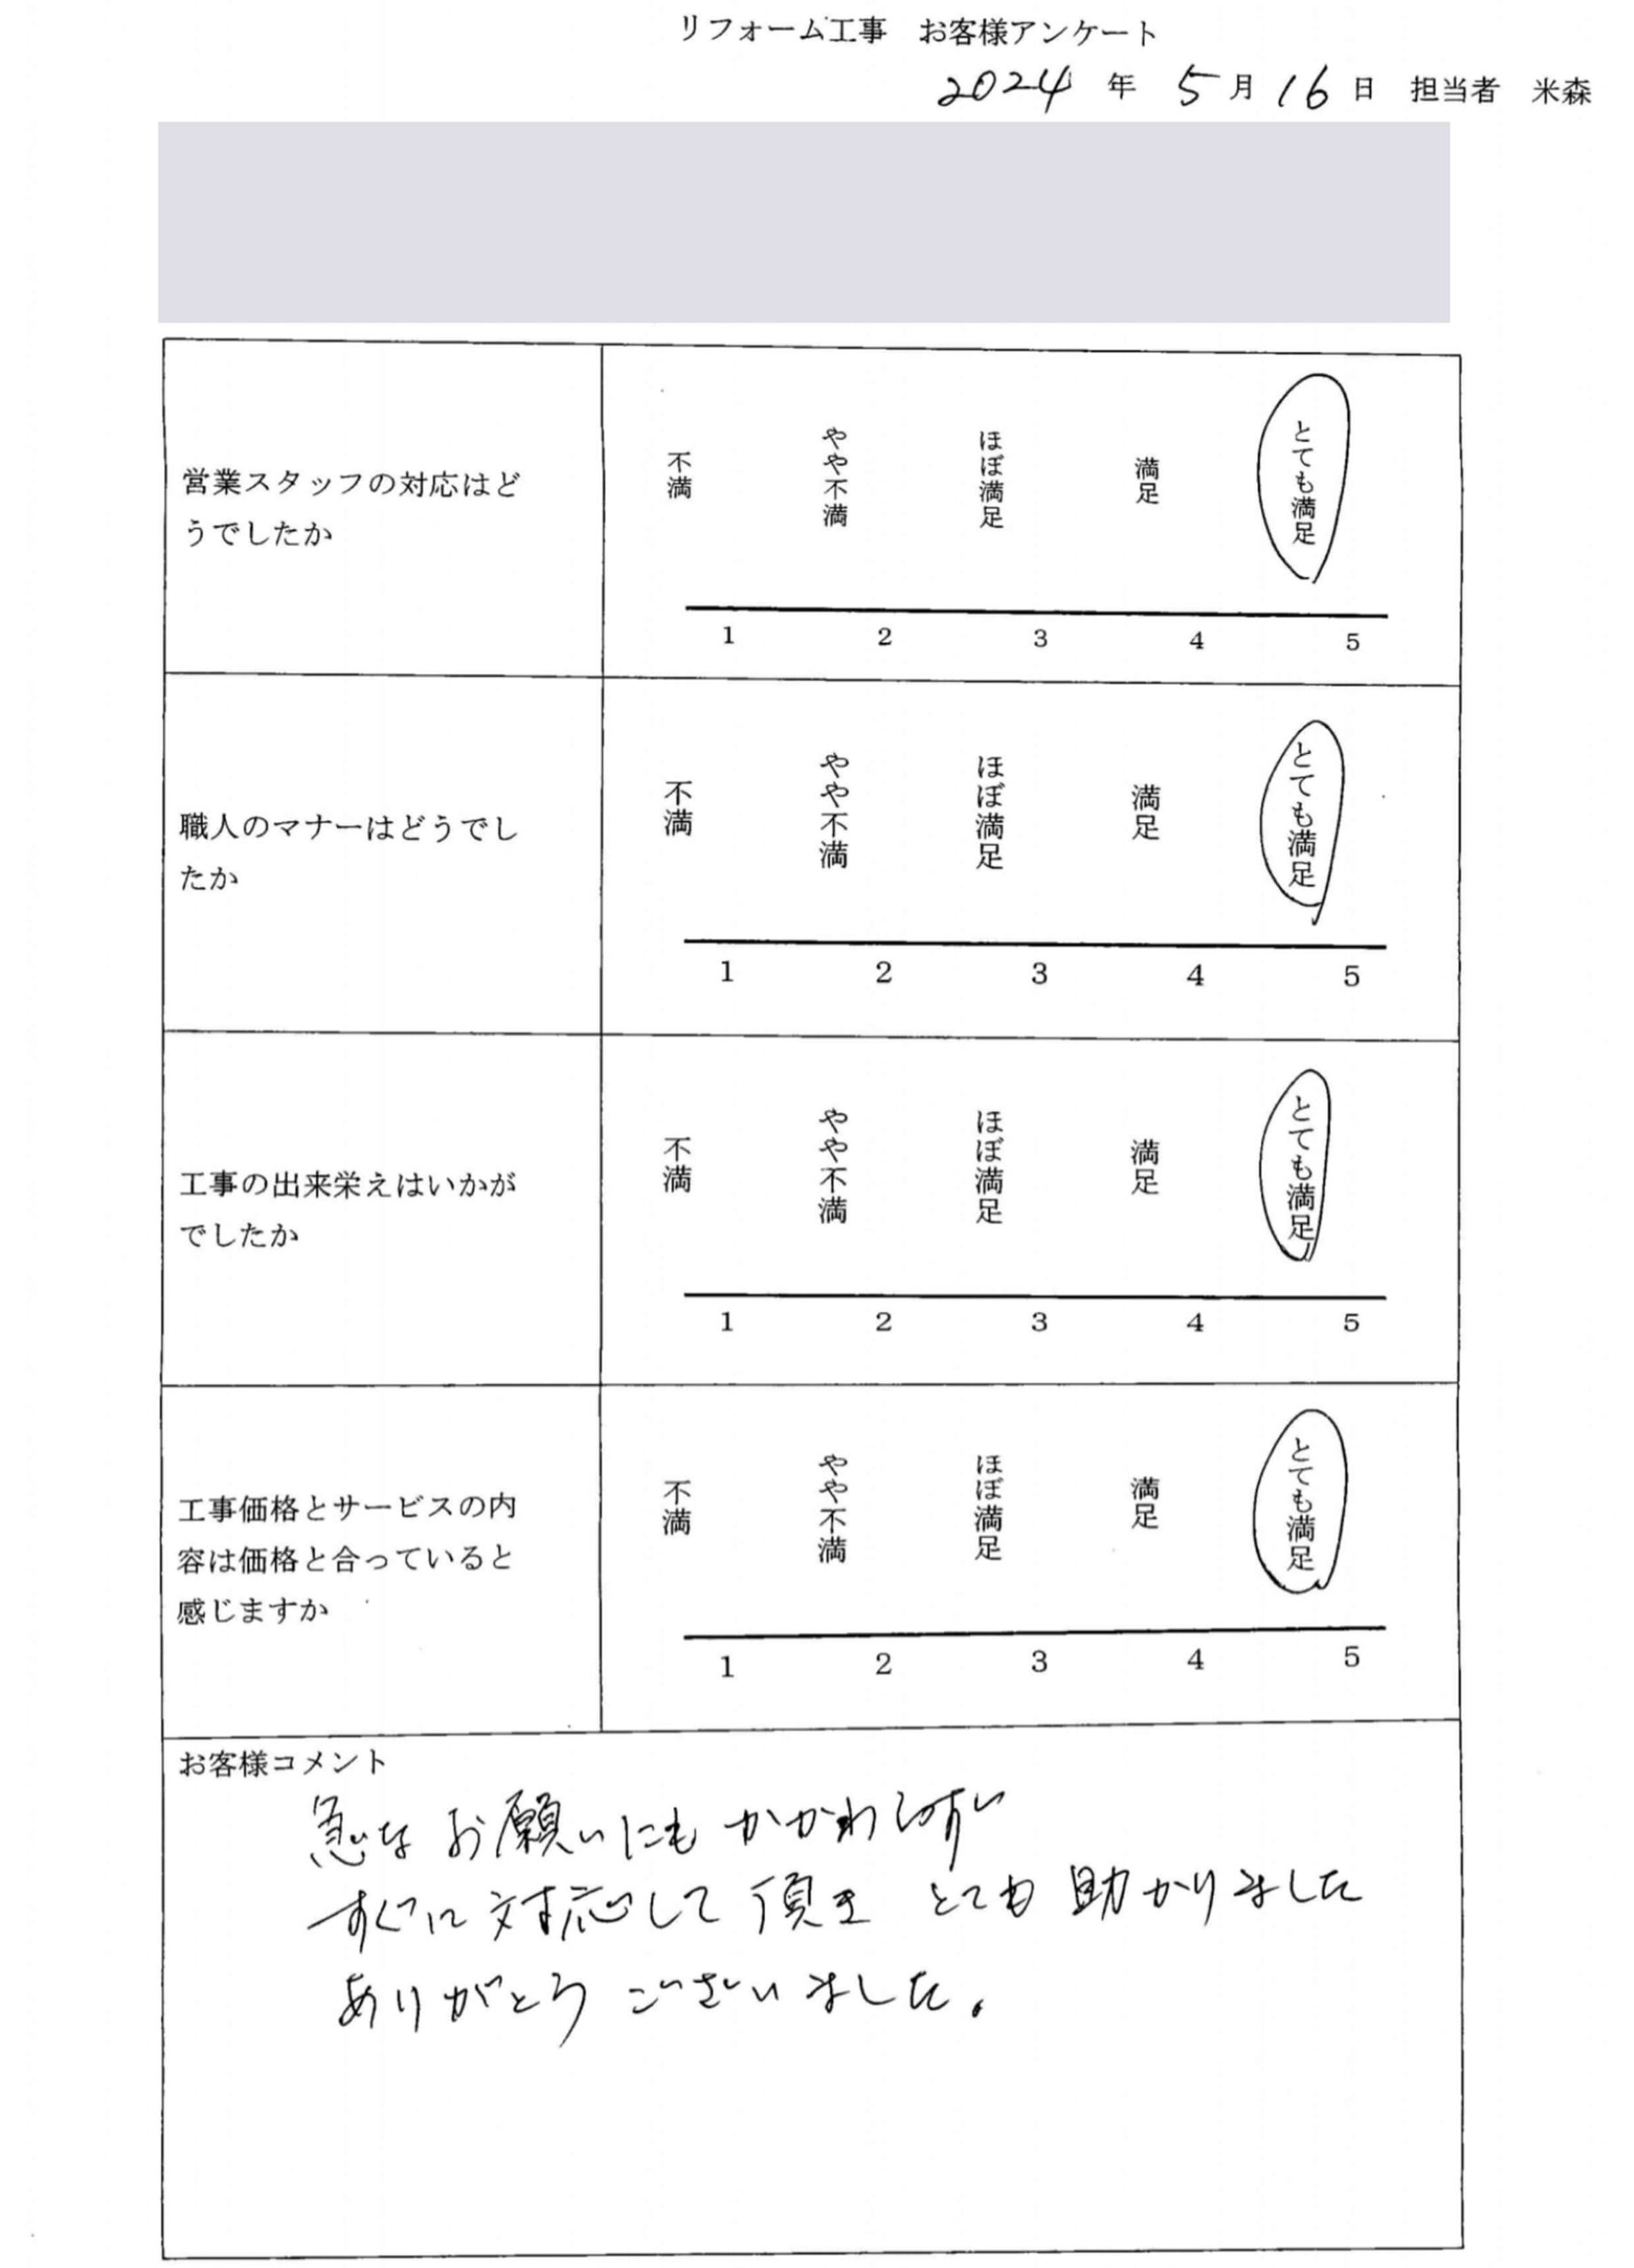 リフォーム工事 お客様アンケート
2024 年 5 月 16 日 担当者 米森
営業スタッフの対応はど
うでしたか
不満 やや不満 ほぼ満足 満足 とても満足
1 2 3 4 5
職人のマナーはどうでし
たか
不満 やや不満 ほぼ満足 満足 とても満足
1 2 3 4 5
工事の出来栄えはいかが
でしたか
不満 やや不満 ほぼ満足 満足 とても満足
1 2 3 4 5
工事価格とサービスの内
容は価格と合っていると
感じますか
不満 やや不満 ほぼ満足 満足 とても満足
1 2 3 4 5
お客様コメント
急なお願いにもかかわらず
すぐに対応して頂き とても助かりました
ありがとうございました。